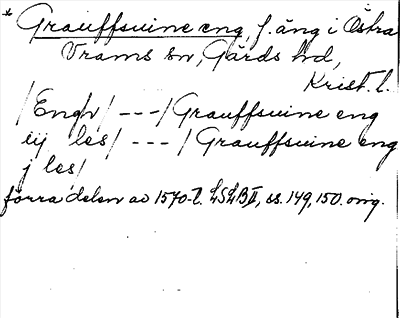 * Grauffsuine eng, f. äng i Östra
Vrams sn, Gärds hd,
Krist. l.
/Engh/ --- / Grauffsuine eng
iij les/ --- / Grauffsuine eng
j les/
förra delen av 1570-t. LSLB II, ss. 149, 150. orig.